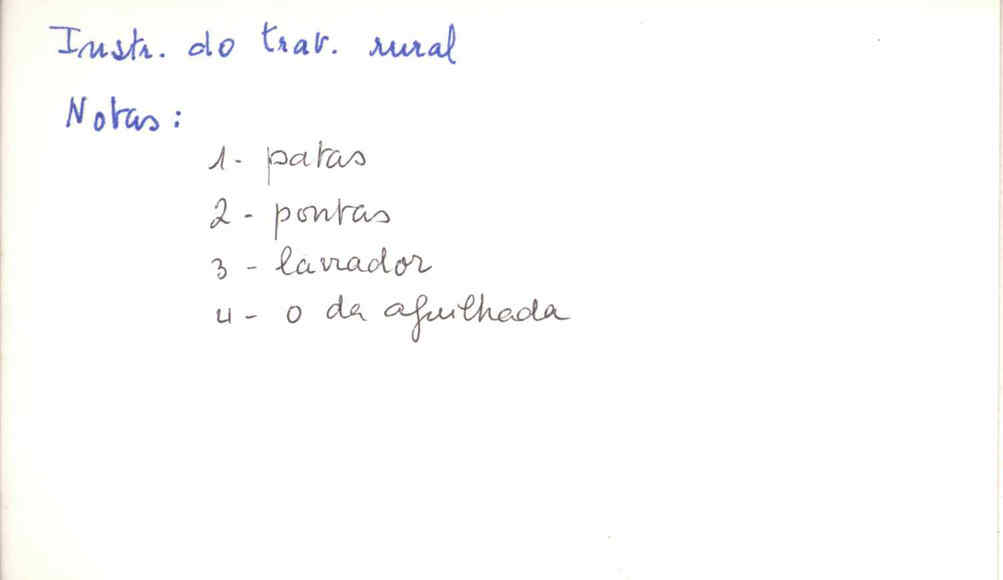 Instr. do trab. rural
Notas:
1- patas
2 - pontas
3 - lavrador
4 - o da aguilhada